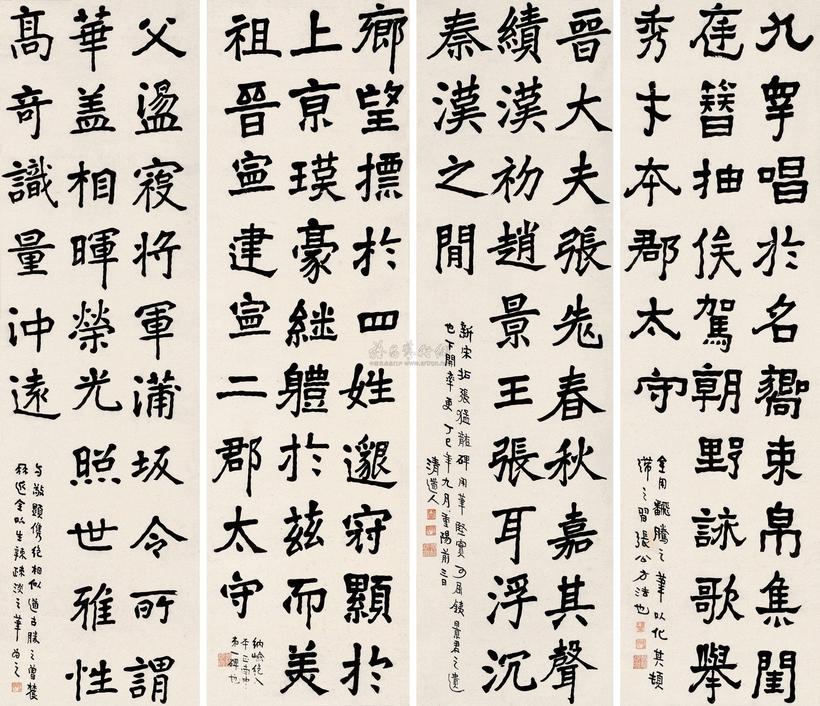 九睾唱於名卿束帛焦閏
庭簪抽俟駕朝野詠歌舉
秀才本郡太守
金用翻騰之筆以化其頓
滯之習張公方法也
晉大夫張老春秋嘉其聲
績漢初趙景王張耳浮沉
秦漢之間
新宋拓張猛龍碑用筆堅實可屈鐵景君之遺
也下開率更丁巳年九月重陽前三日
清道人
鄉望標於四姓邈窈顯於
上京瑛豪繼體於茲而美
祖晉寧建寧二郡太守
納險絕入
平正南中
第一碑也
父盪寇將軍蒲坂令所謂
華蓋相暉榮光照世雅性
高奇識量沖遠
与敬顯儁絕相似道古勝之曾農
髯令以生辣疎淡之筆為之